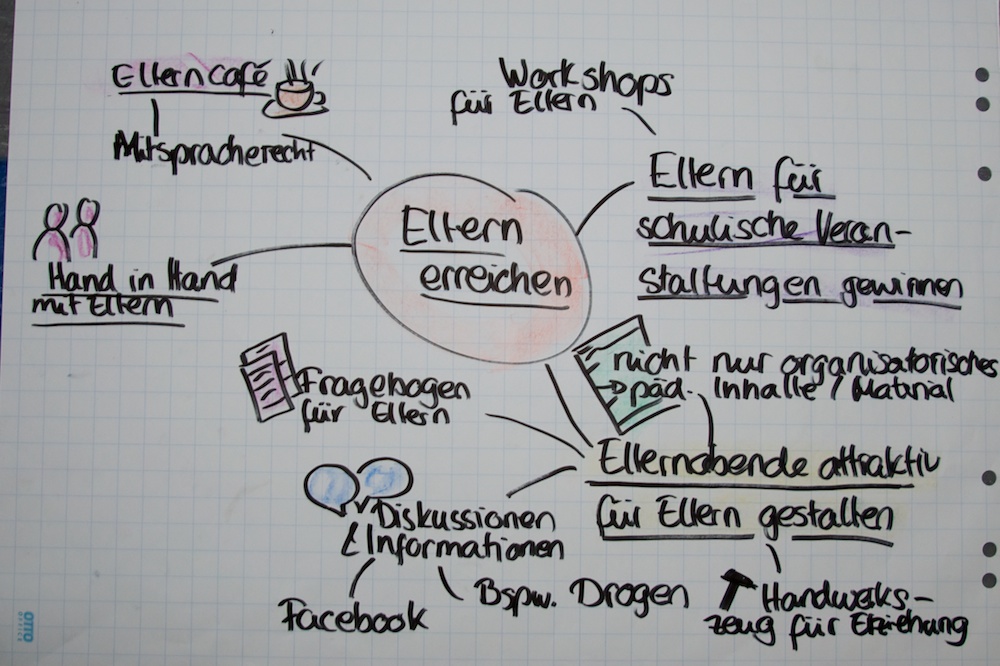 Elterncafé
Mitspracherecht
Workshops
für Eltern
Eltern für
schulische Veran-
staltungen gewinnen
Eltern
erreichen
Hand in Hand
mit Eltern
nicht nur organisatorisches
→ päd. Inhalte / Material
Fragebogen
für Eltern
Elternabende attraktiv
für Eltern gestalten
Diskussionen
Informationen
Facebook
Bspw. Drogen
Handwerks-
zeug für Erziehung
OTTO
OFFICE